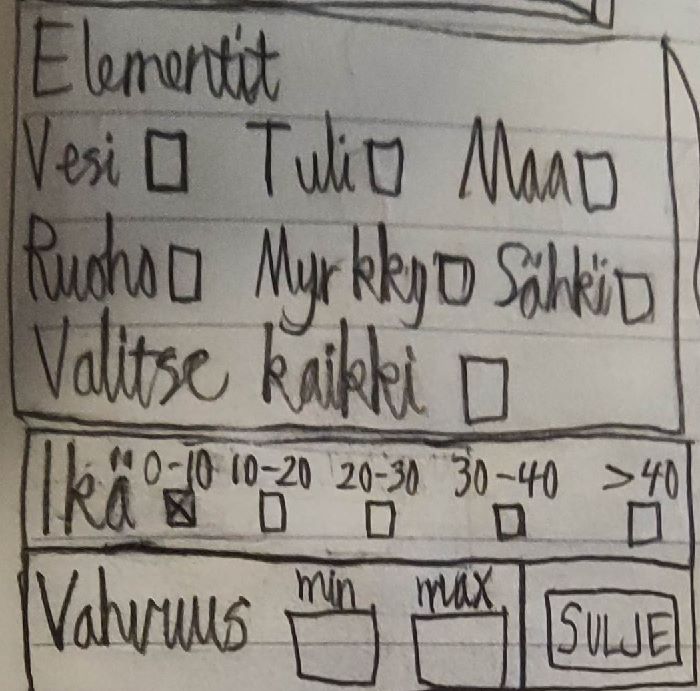 Elementit
Vesi Tuli Maa
Ruoho Myrkky Sähkö
Valitse kaikki
Ikä 0-10 10-20 20-30 30-40 >40
Vahvuus min max SULJE